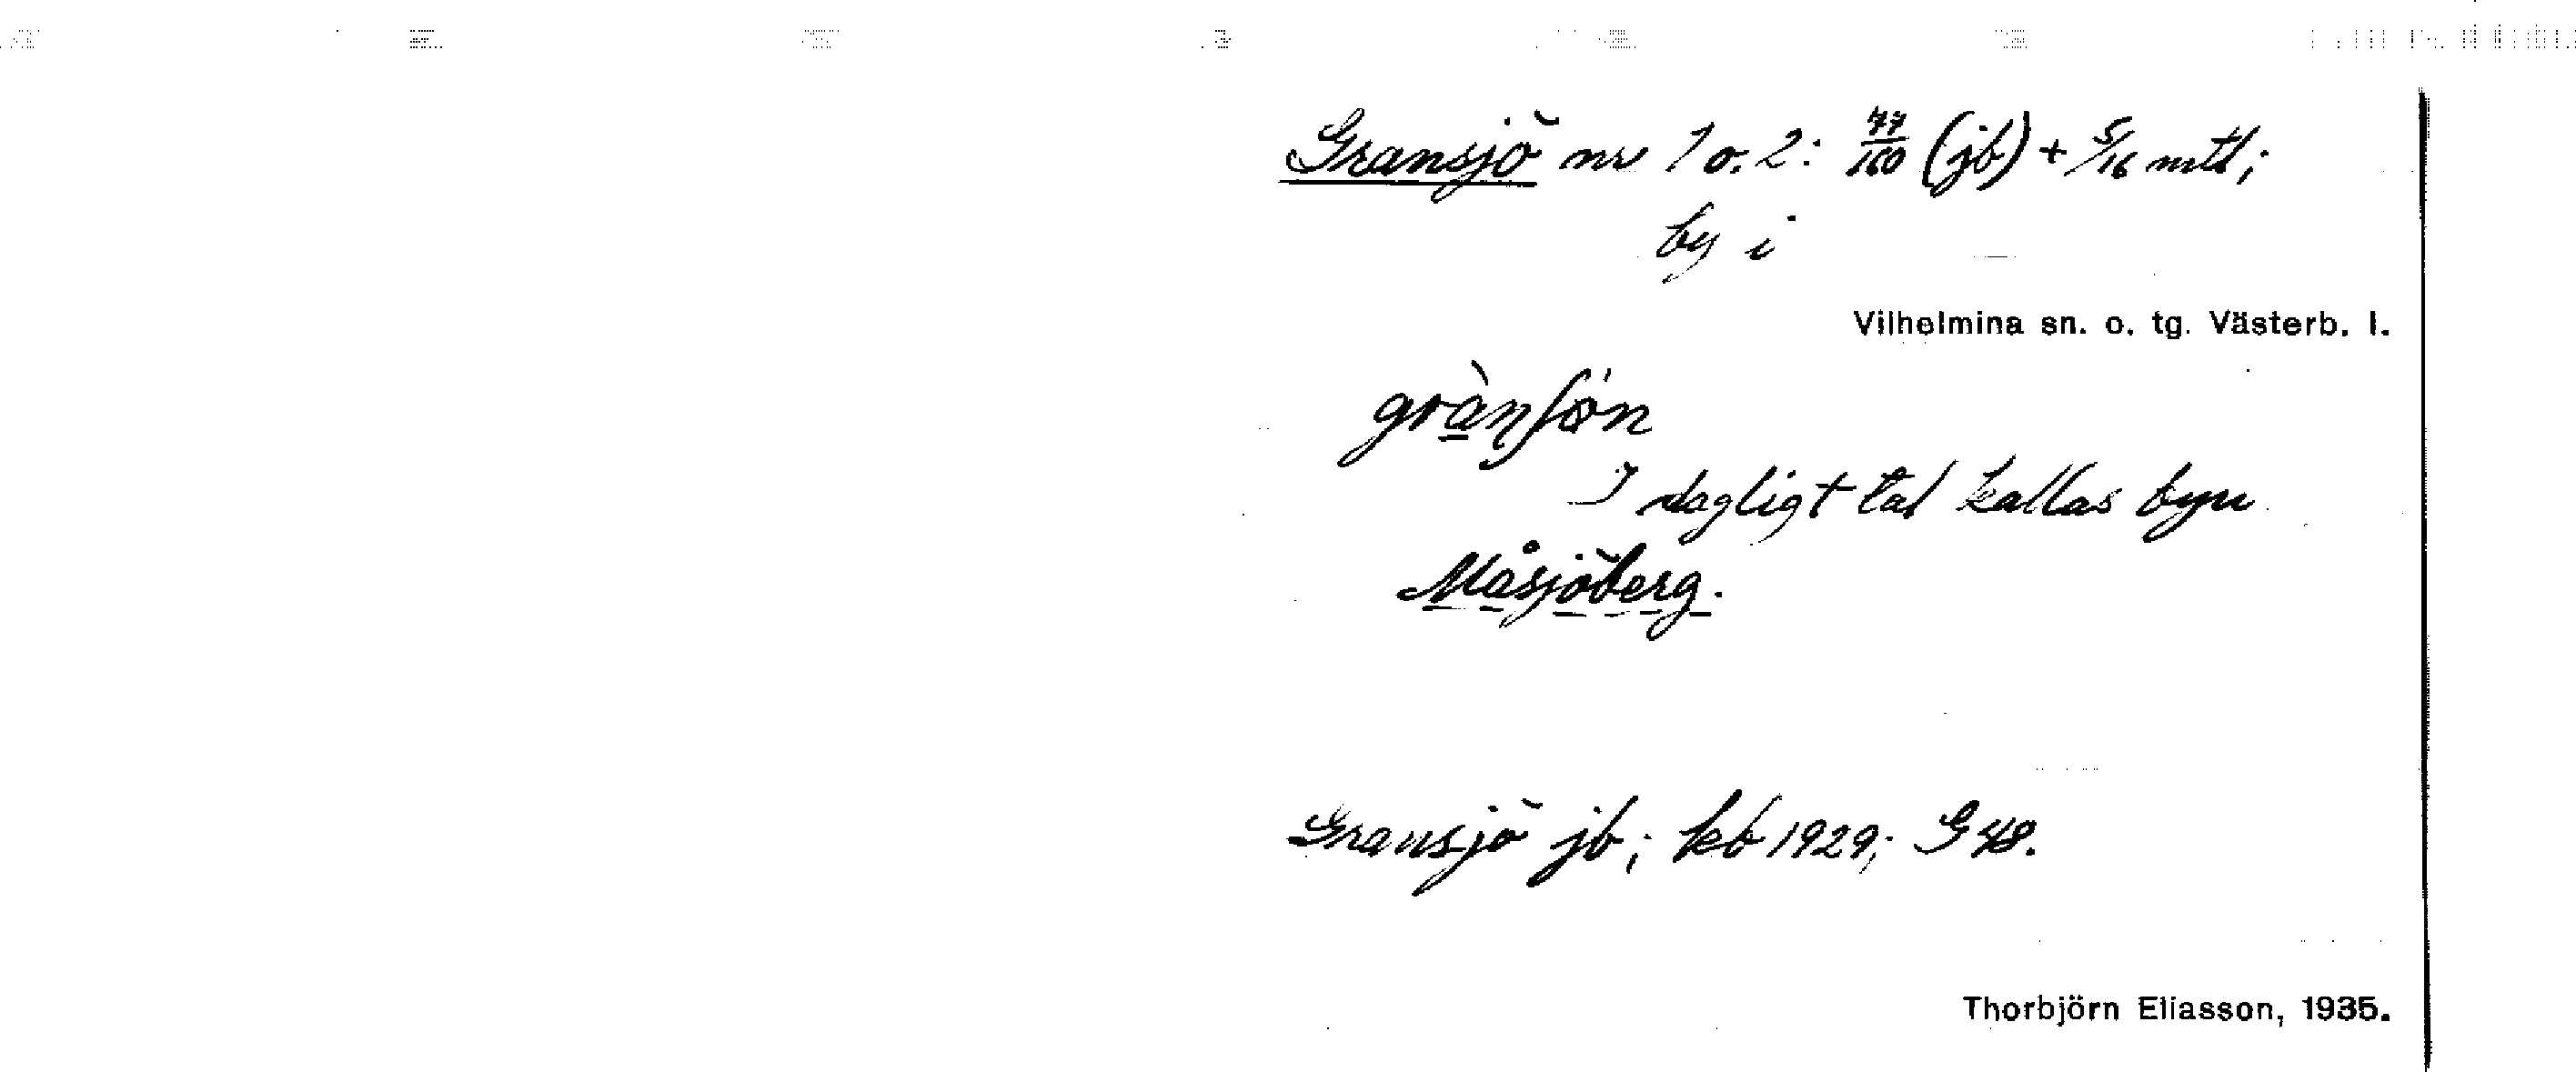 Gransjö nr 1 o. 2: 77/160 (jb) + 5/16 mtl;
by i
Vilhelmina sn. o. tg. Västerb. l.
I dagligt tal kallas byn
Måsjöberg.
Gransjö jb; kb 1929; G 48.
Thorbjörn Eliasson, 1935.